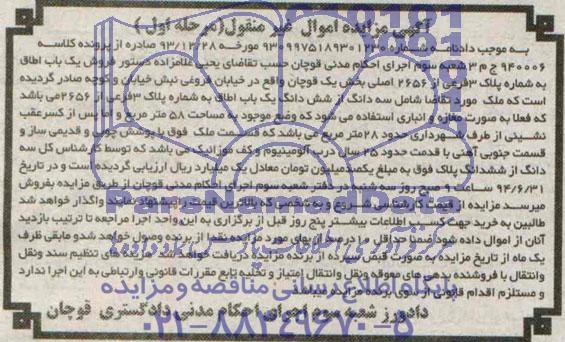 آگهی مزایده اموال غیر منقول(مرحله اول)
به موجب دادنامه شماره 9309975189301230 مورخه 93/12/28 صادره از پرونده کلاسه
940006 ج م 3 شعبه سوم اجرای احکام مدنی قوچان حسب تقاضای یحیی غلامزاده دستور فروش یک باب اطاق
به شماره پلاک 3فرعی از 2656 اصلی بخش یک قوچان واقع در خیابان فروغی نبش خیابان و کوچه صادر گردیده
است که ملک مورد تقاضا شامل سه دانگ از شش دانگ یک باب اطاق به شماره پلاک 3فرعی از 2656می باشد
که فعلا به صورت مغازه و انباری استفاده می شود که وضع موجود به مساحت 58 متر مربع و اما پس از کسر عقب
نشینی از طرف شهرداری حدود 28متر مربع می باشد که قسمت ملک فوق با پوشش چوبی و قدیمی ساز و
قسمت جنوبی آهنی با قدمت حدود 25 سال درب آلومینیوم و کف موزائیک می باشد که توسط کارشناس کل سه
دانگ از ششدانگ پلاک فوق به مبلغ یکصدمیلیون تومان معادل یک میلیارد ریال ارزیابی گردیده است و در تاریخ
94/6/31 ساعت 9 صبح روز سه شنبه در دفتر شعبه سوم اجرای احکام مدنی قوچان از طریق مزایده بفروش
میرسد مزایده از قیمت کارشناسی شروع و به شخصی که بالاترین قیمت را پیشنهاد نمایند واگذار خواهد شد
طالبین به خرید جهت کسب اطلاعات بیشتر پنج روز قبل از برگزاری به این واحد اجرا مراجعه تا ترتیب بازدید
آنان از اموال داده شود ضمنا حداقل 10 درصد از بهای مورد مزایده نقدا از برنده وصول خواهد شد و مابقی ظرف
یک ماه از تاریخ مزایده به صورت قبض سپرده از برنده مزایده دریافت خواهد شد هزینه های تنظیم سند ونقل
وانتقال با فروشنده بدهی های معوقه ونقل وانتقال امتیاز و تخلیه تابع مقررات قانونی وارتباطی به این اجرا ندارد
و مستلزم اقدام قانونی از سوی برنده مزایده میباشد
دادورز شعبه سوم اجرای احکام مدنی دادگستری قوچان
پایگاه اطلاع رسانی مناقصه و مزایده
021-88349670-5